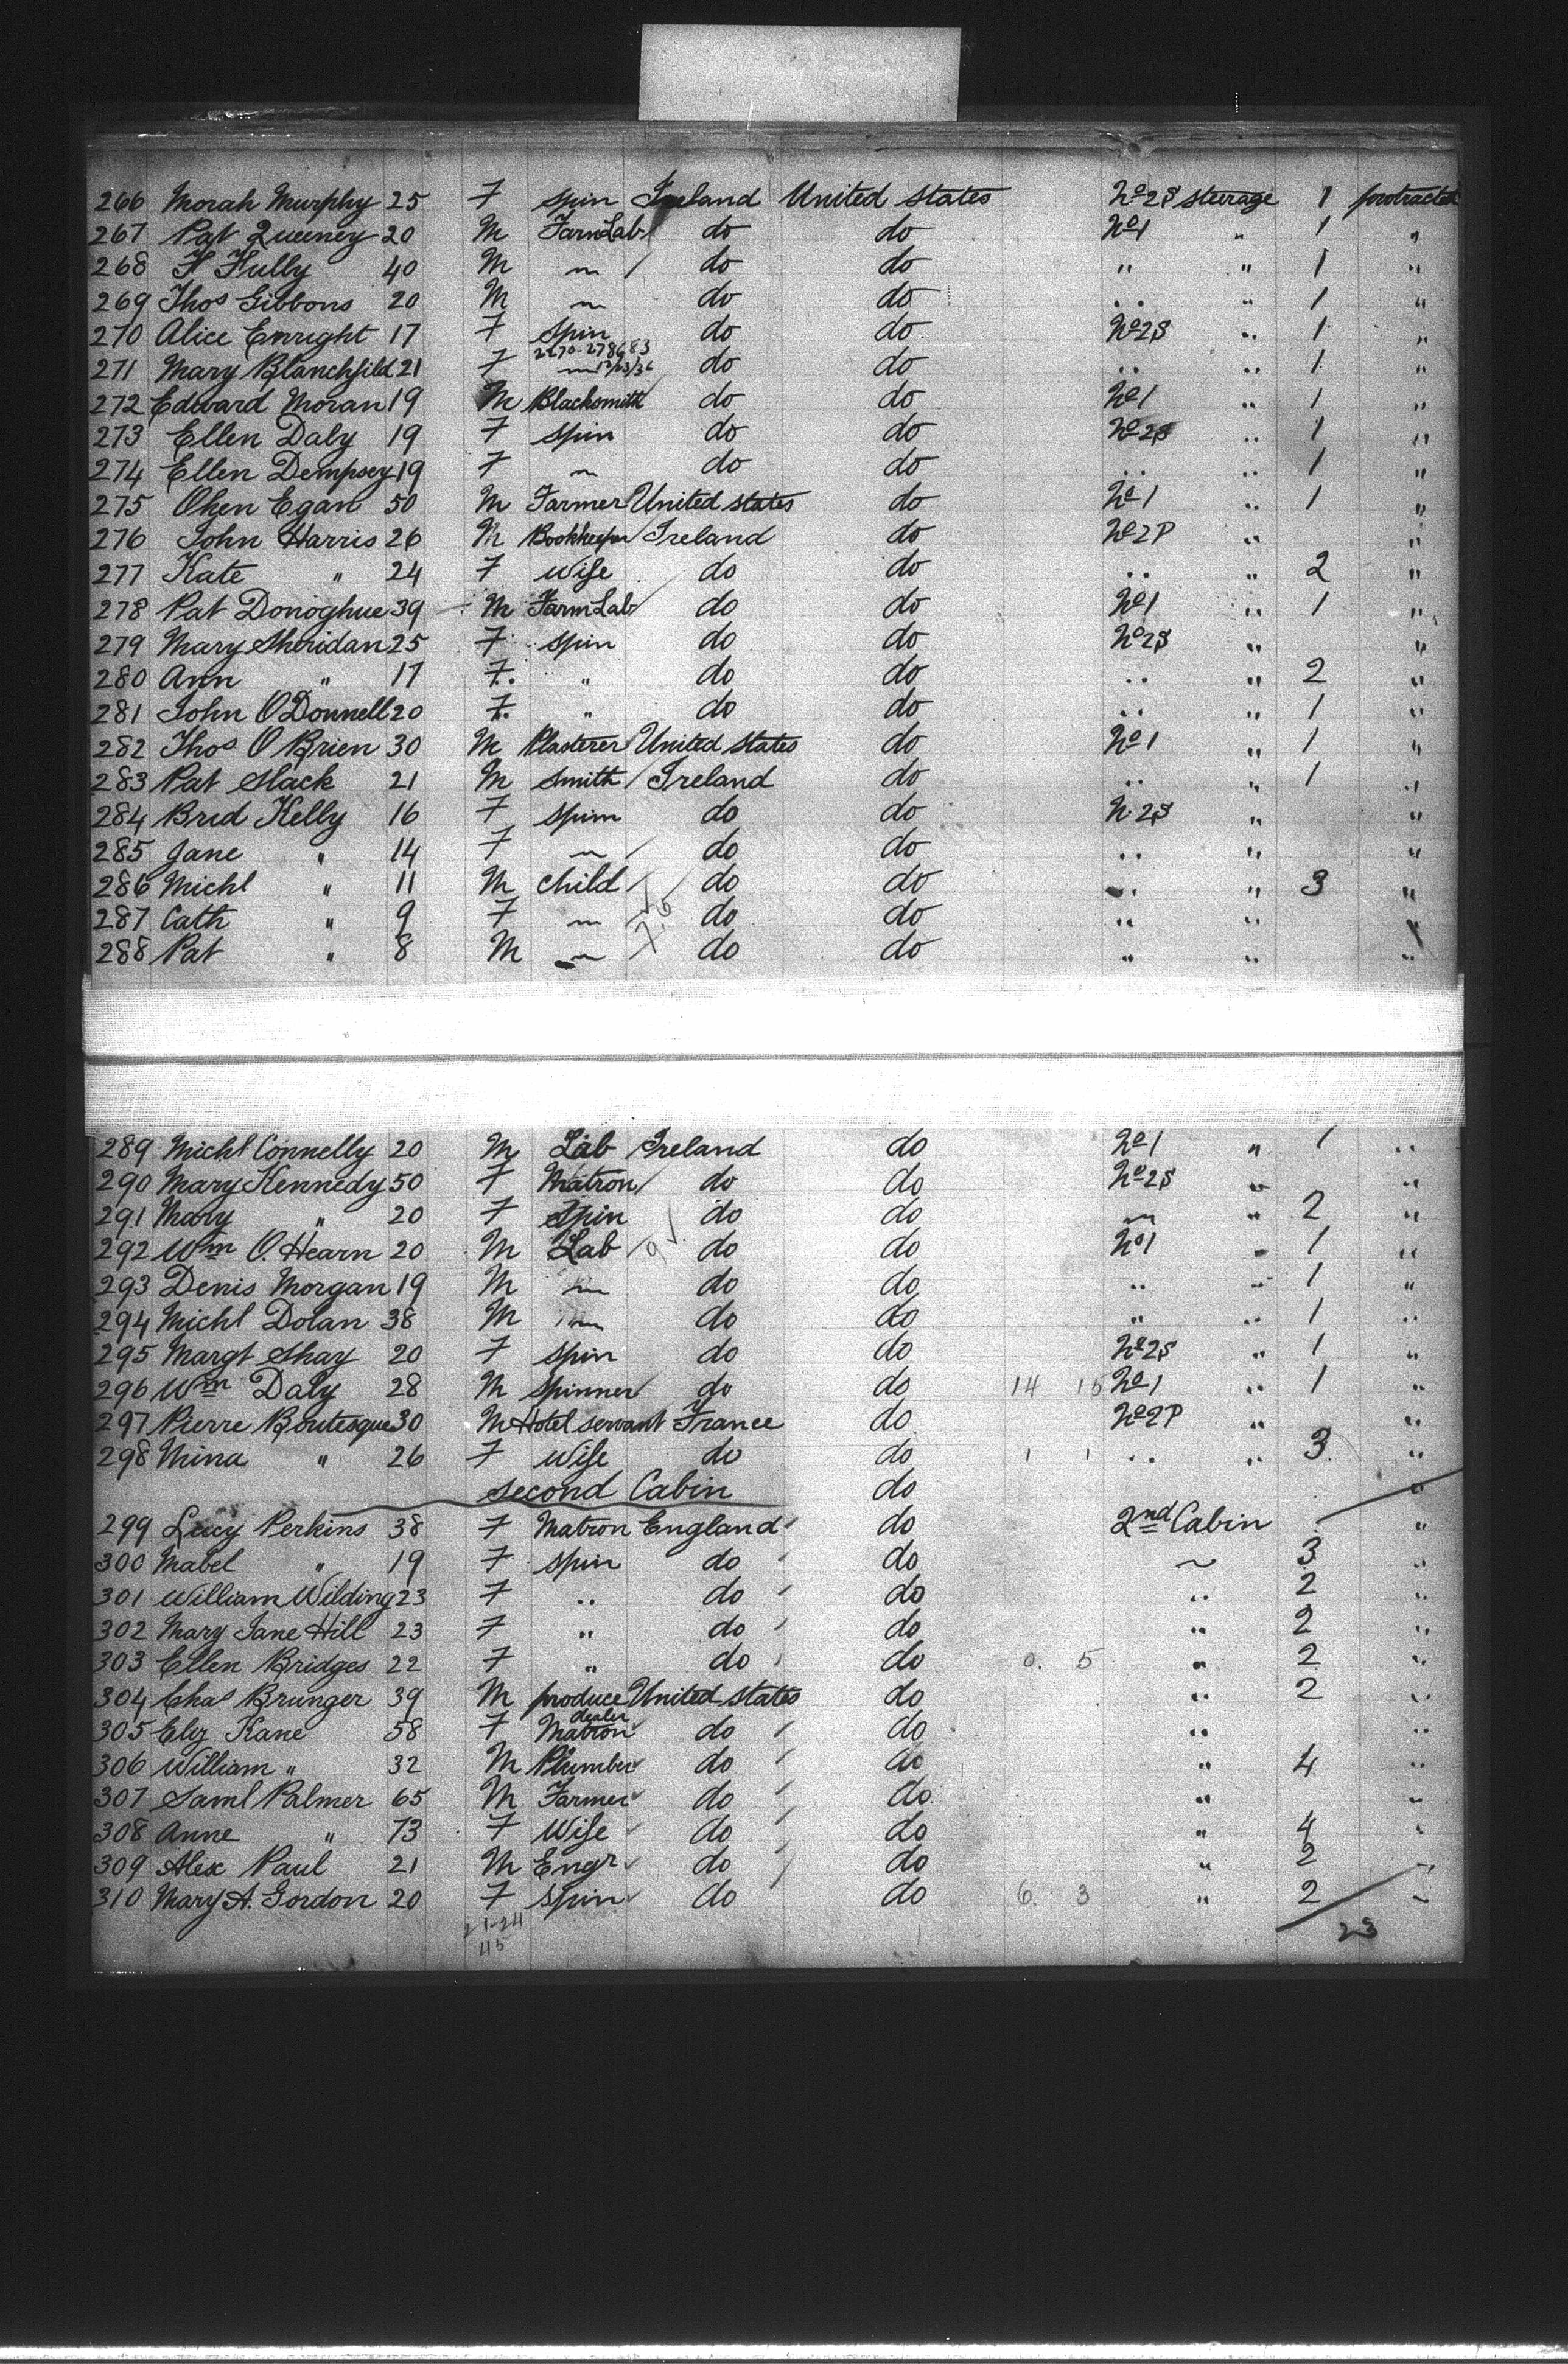 266 Morah Murphy 25 F spin Ireland United States No 2S steerage 1 protracted
267 Pat Queeney 20 M Farm Lab do do No 1 " 1 "
268 F Fully 40 M " do do " " 1 "
269 Thos Gibbons 20 M " do do " " 1 "
270 Alice Enright 17 F Spin do do No 2S " 1 "
271 Mary Blanchfild 21 F " do do " " 1 "
272 Edward Moran 19 M Blacksmith do do No 1 " 1 "
273 Ellen Daly 19 F spin do do No 2S " 1 "
274 Ellen Dempsey 19 F " do do " " 1 "
275 Ohen Egan 50 M Farmer United States do No 1 " 1 "
276 John Harris 26 M Bookkeeper Ireland do No 2P "
277 Kate " 24 F Wife do do " " 2 "
278 Pat Donoghue 39 M Farm Lab do do No 1 " 1 "
279 Mary Sheridan 25 F spin do do No 2S " "
280 Ann " 17 F " do do " " 2 "
281 John O Donnell 20 F " do do " " 1 "
282 Thos O Brien 30 M Plasterer United States do No 1 " 1 "
283 Pat Slack 21 M Smith Ireland do " " 1 "
284 Brid Kelly 16 F Spin do do N. 2S " "
285 Jane " 14 F " do do " " "
286 Michl " 11 M child do do " " 3 "
287 Cath " 9 F " do do " "
288 Pat " 8 M " do do " " "
289 Michl Connelly 20 M Lab Ireland do No 1 " 1 "
290 Mary Kennedy 50 F Matron do do No 2S " "
291 Mary " 20 F Spin do do " " 2 "
292 Wm O. Hearn 20 M Lab do do No 1 " 1 "
293 Denis Morgan 19 M " do do " " 1 "
294 Michl Dolan 38 M " do do " " 1 "
295 Margt Shay 20 F spin do do No 2S " 1 "
296 Wm Daly 28 M spinner do do 14 15 No 1 " 1 "
297 Pierre Boutesque 30 M Hotel servant France do No 2P " "
298 Mina " 26 F Wife do do 1 1 " " 3 "
second Cabin do "
299 Lucy Perkins 38 F Matron England do 2nd Cabin "
300 Mabel " 19 F spin do do " 3 "
301 William Wilding 23 F " do do " 2 "
302 Mary Jane Hill 23 F " do do " 2 "
303 Ellen Bridges 22 F " do do 0. 5 " 2 "
304 Chas Brunger 39 M produce dealer United States do " 2 "
305 Eliz Kane 58 F Matron do do " "
306 William " 32 M Plumber do do " 4 "
307 Saml Palmer 65 M Farmer do do " "
308 Anne " 73 F Wife do do " 4 "
309 Alex Paul 21 M Engr do do " 2 "
310 Mary A. Gordon 20 F spin do do 6. 3 " 2 "
21-24 23
45